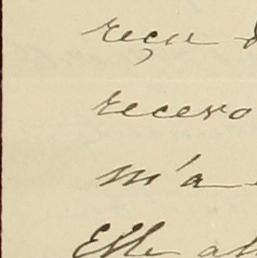 reçu
recevo
m'a
Elle